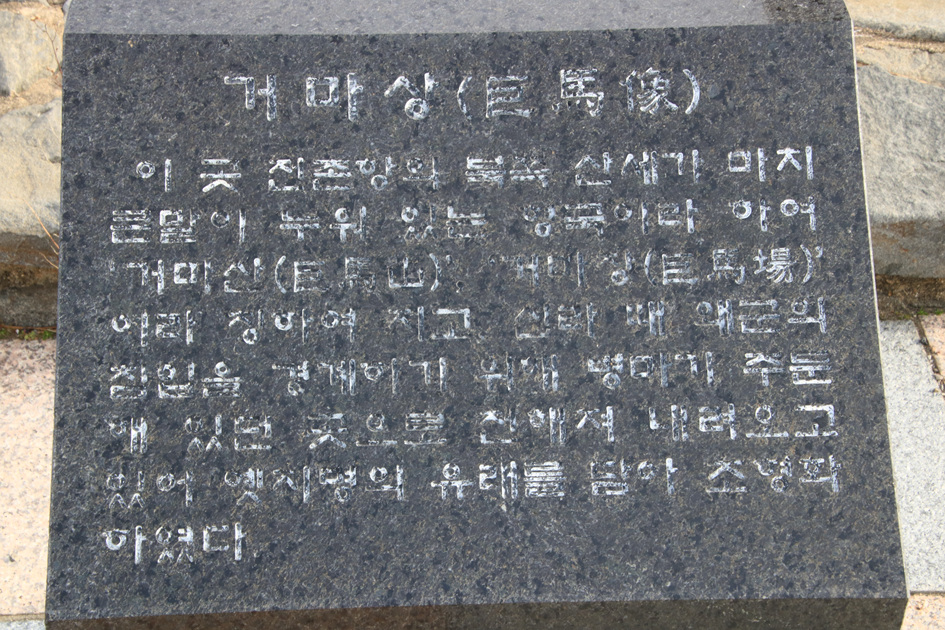 거마상(巨馬像)
이 곳 전촌항의 북쪽 산세가 마치
큰말이 누워 있는 형국이라 하여
'거마산(巨馬山)', '거마장(巨馬場)'
이라 칭하여 지고, 신라 때 왜군의
침입을 경계하기 위해 병마가 주둔
해 있던 곳으로 전해져 내려오고
있어 옛지명의 유래를 담아 조형화
하였다.